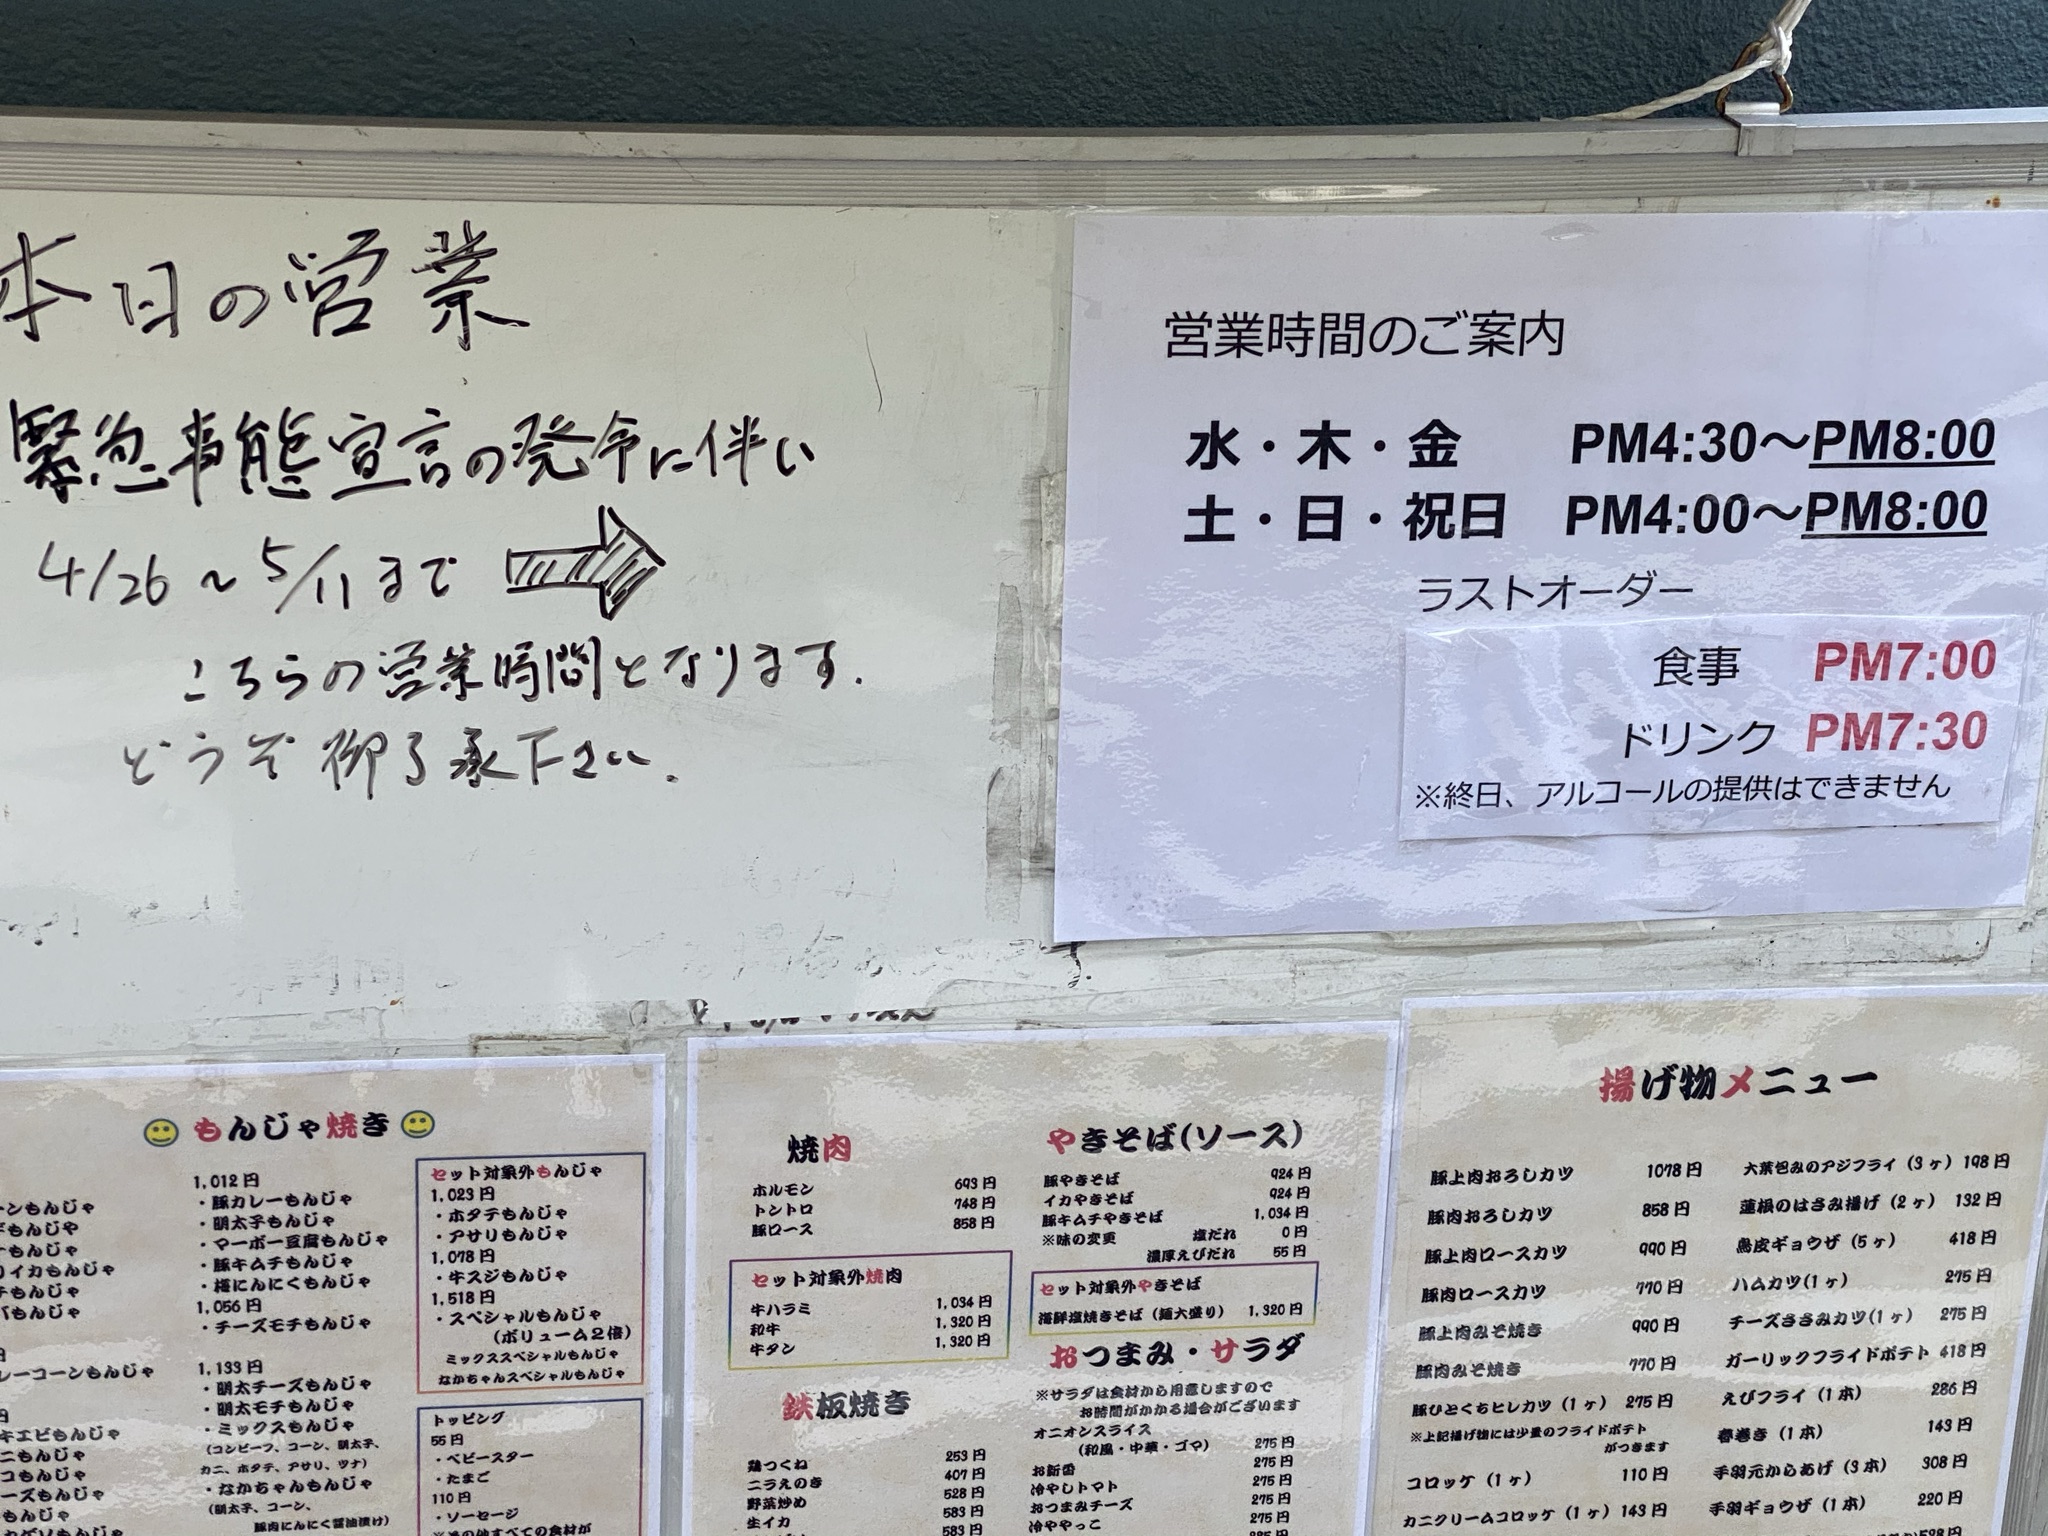 本日の営業
緊急事態宣言の発令に伴い
4/26〜5/11まで
こちらの営業時間となります.
どうぞ御了承下さい.
営業時間のご案内
水・木・金 PM4:30〜PM8:00
土・日・祝日 PM4:00〜PM8:00
ラストオーダー
食事 PM7:00
ドリンク PM7:30
※終日、アルコールの提供はできません
もんじゃ焼き
ーンもんじゃ
もんじゃ
もんじゃ
イカもんじゃ
もんじゃ
もんじゃ
円
レーコーンもんじゃ
円
キエビもんじゃ
ニもんじゃ
コもんじゃ
ーズもんじゃ
もんじゃ
1,012円
・豚カレーもんじゃ
・明太子もんじゃ
・マーボー豆腐もんじゃ
・豚キムチもんじゃ
・梅にんにくもんじゃ
1,056円
・チーズモチもんじゃ
1,133円
・明太チーズもんじゃ
・明太モチもんじゃ
・ミックスもんじゃ
(コンビーフ、コーン、明太子、
カニ、ホタテ、アサリ、ツナ)
・なかちゃんもんじゃ
(明太子、コーン、
豚肉にんにく醤油漬け)
セット対象外もんじゃ
1,023円
・ホタテもんじゃ
・アサリもんじゃ
1,078円
・牛スジもんじゃ
1,518円
・スペシャルもんじゃ
(ボリューム2倍)
ミックススペシャルもんじゃ
なかちゃんスペシャルもんじゃ
トッピング
55円
・ベビースター
・たまご
110円
・ソーセージ
※その他すべての食材が
焼肉
ホルモン 693円
トントロ 748円
豚ロース 858円
セット対象外焼肉
牛ハラミ 1,034円
和牛 1,320円
牛タン 1,320円
鉄板焼き
鶏つくね 253円
ニラえのき 407円
野菜炒め 528円
生イカ 583円
583円
やきそば(ソース)
豚やきそば 924円
イカやきそば 924円
豚キムチやきそば 1,034円
※味の変更 塩だれ 0円
濃厚えびだれ 55円
セット対象外やきそば
海鮮塩焼きそば(麺大盛り) 1,320円
おつまみ・サラダ
※サラダは食材から用意しますので
お時間がかかる場合がございます
オニオンスライス
(和風・中華・ゴマ) 275円
お新香 275円
冷やしトマト 275円
おつまみチーズ 275円
冷ややっこ
揚げ物メニュー
豚上肉おろしカツ 1078円
豚肉おろしカツ 858円
豚上肉ロースカツ 990円
豚肉ロースカツ 770円
豚上肉みそ焼き 990円
豚肉みそ焼き 770円
豚ひとくちヒレカツ(1ヶ) 275円
※上記揚げ物には少量のフライドポテト
がつきます
コロッケ(1ヶ) 110円
カニクリームコロッケ(1ヶ) 143円
大葉包みのアジフライ(3ヶ) 198円
蓮根のはさみ揚げ(2ヶ) 132円
鳥皮ギョウザ(5ヶ) 418円
ハムカツ(1ヶ) 275円
チーズささみカツ(1ヶ) 275円
ガーリックフライドポテト 418円
えびフライ(1本) 286円
春巻き(1本) 143円
手羽元からあげ(3本) 308円
手羽ギョウザ(1本) 220円
528円